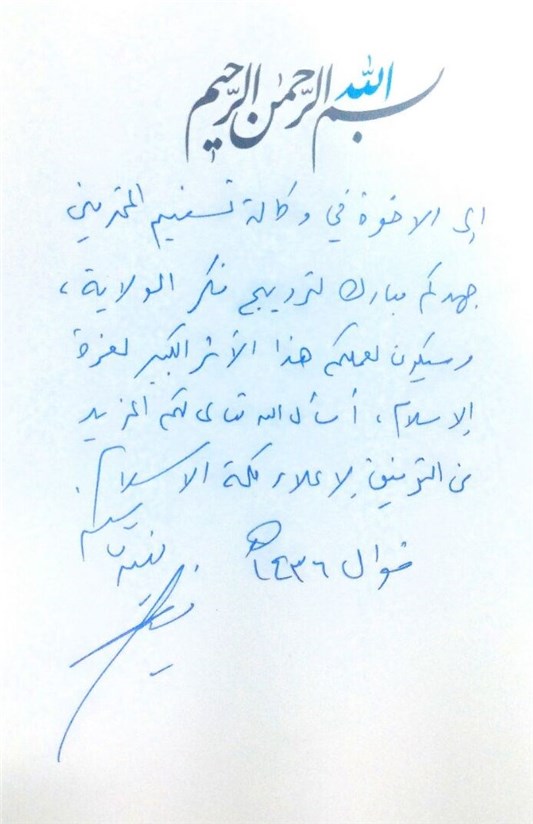 بسم الله الرحمن الرحيم
إلى الاخوة في وكالة تسنيم المحترمين
جهدكم مبارك لترويج فكر الولاية،
وسيكون لعملكم هذا الأثر الكبير لعزة
الإسلام، أسأل الله تعالى لكم المزيد
من التوفيق لإعلاء كلمة الاسلام.
شوال ١٤٣٦هـ
نعيم